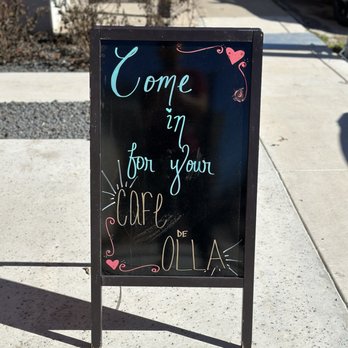 Come
in
for your
CAFE
DE
OLLA